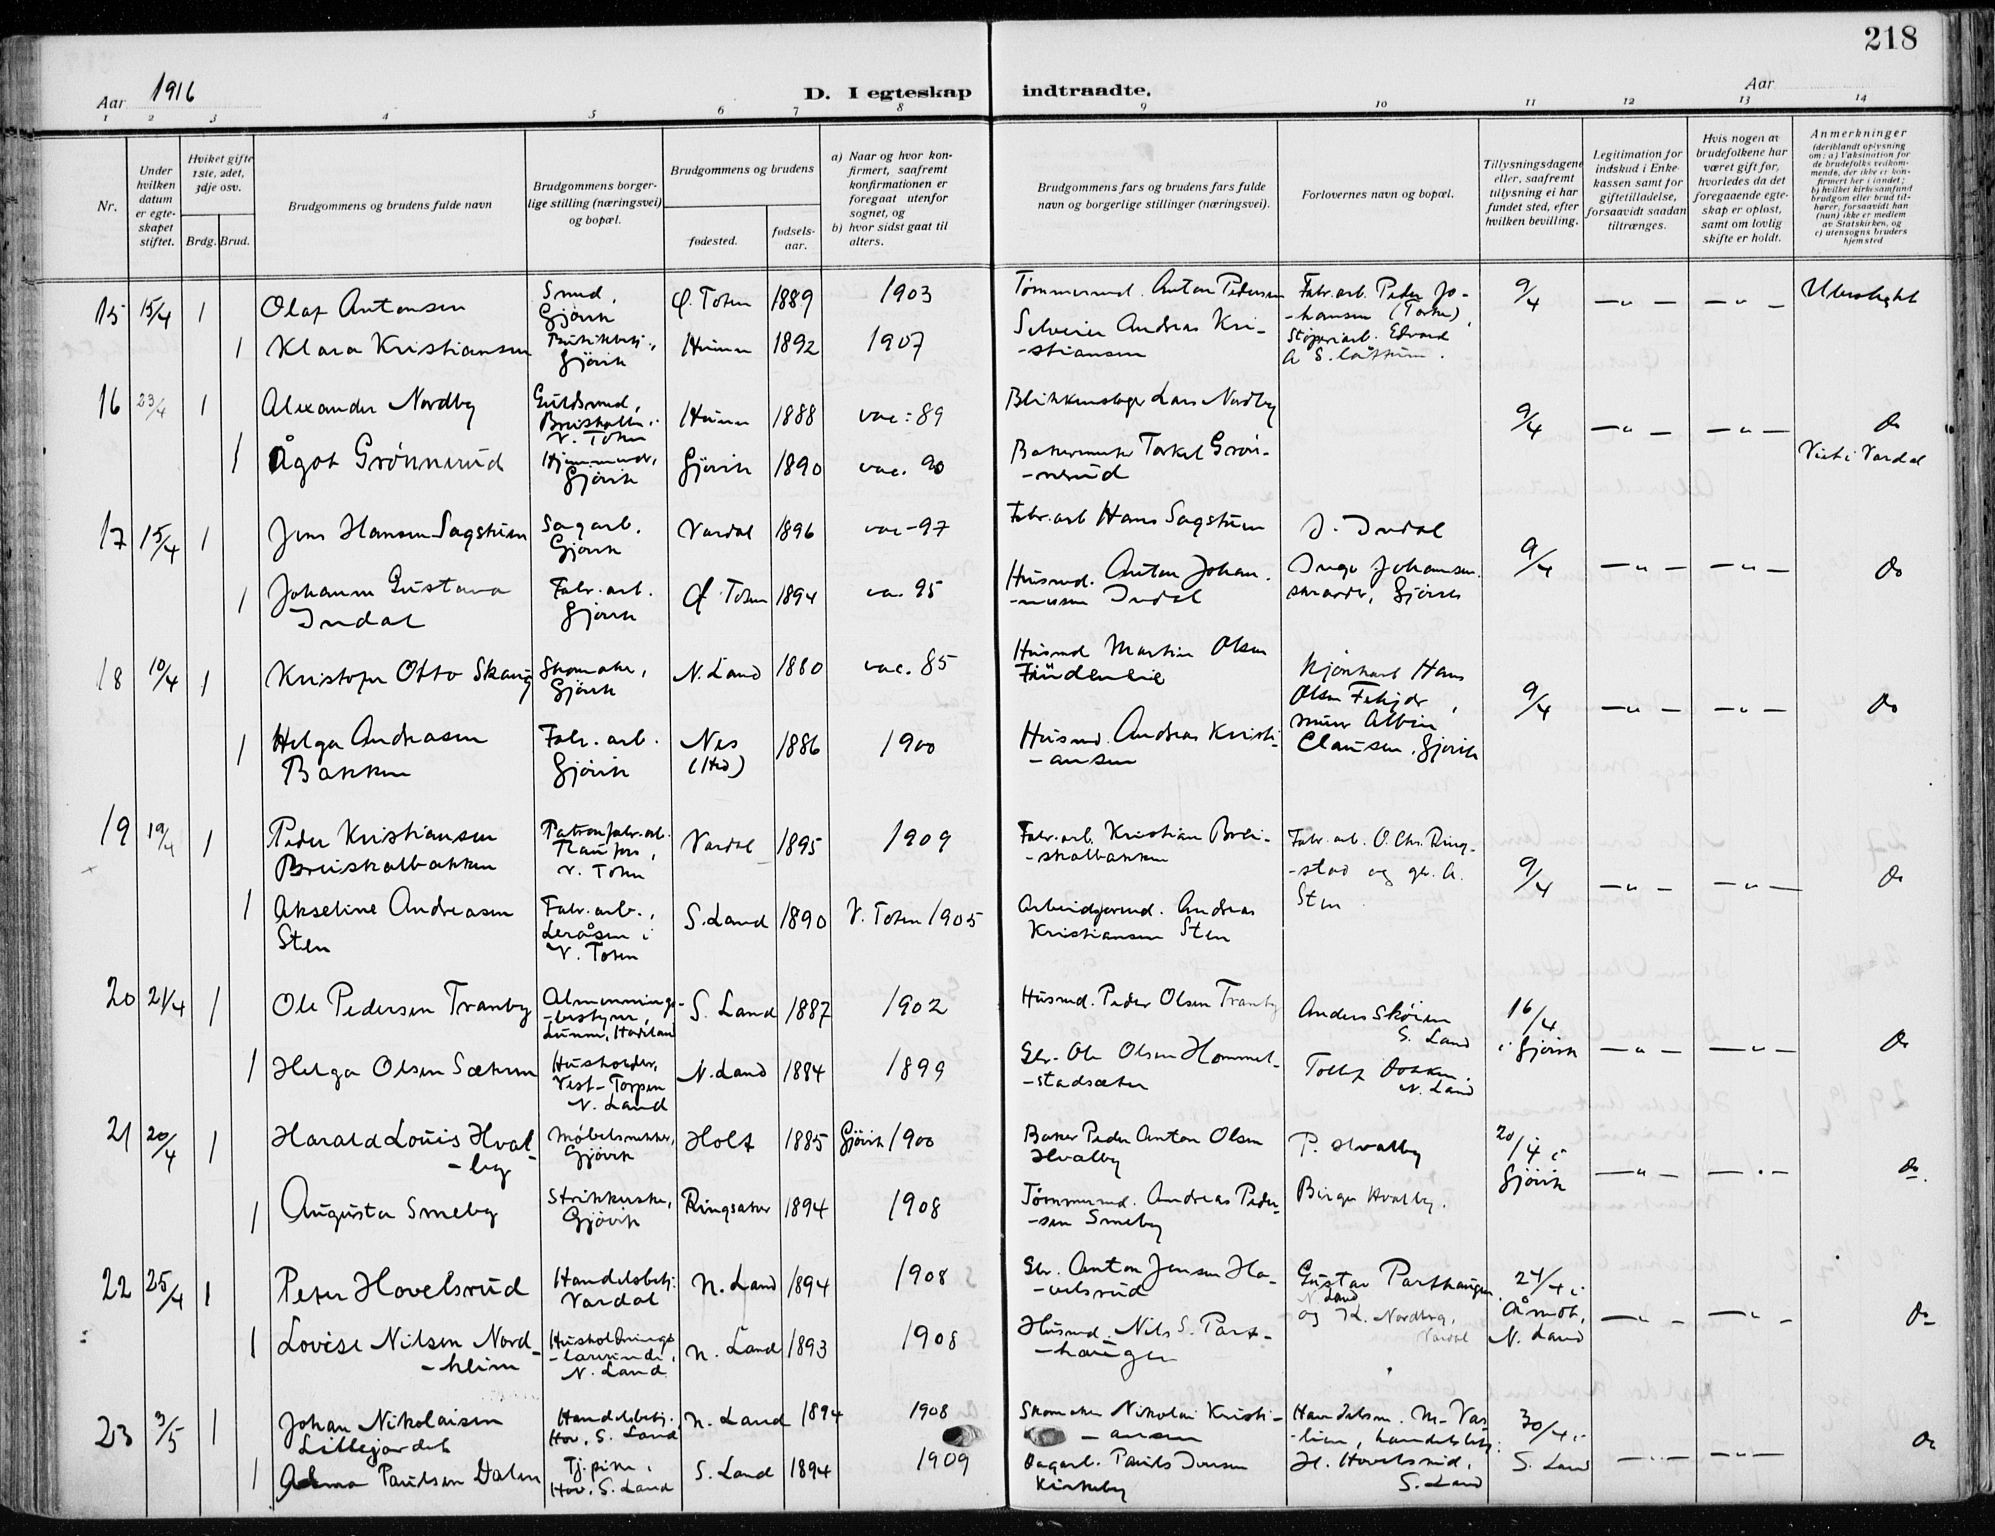 218
Aar 1916
D. I egteskap indtraadte.
Aar
1 2 3 4 5 6 7 8 9 10 11 12 13 14
Nr.
Under hvilken datum er egteskapet stiftet.
Hviket gifte 1ste, 2det, 3dje osv.
Brdg. Brud.
Brudgommens og brudens fulde navn
Brudgommens borgerlige stilling (næringsvei) og bopæl.
Brudgommens og brudens
fødested.
fødselsaar.
a) Naar og hvor konfirmert, saafremt konfirmationen er foregaat utenfor sognet, og
b) hvor sidst gaat til alters.
Brudgommens fars og brudens fars fulde navn og borgerlige stillinger (næringsvei).
Forlovernes navn og bopæl.
Tillysningsdagene eller, saafremt tillysning ei har fundet sted, efter hvilken bevilling.
Legitimation for indskud i Enkekassen samt for giftetilladelse, forsaavidt saadan tiltrænges.
Hvis nogen av brudefolkene har været gift før, hvorledes da det foregaaende egteskap er opløst, samt om lovlig skifte er holdt.
Anmerkninger (deriblandt oplysning om: a) Vaksination for de brudefolks vedkommende, der ikke er konfirmert her i landet; b) hvilket kirkesamfund brudgom eller brud tilhører, forsaavidt han (hun) ikke er medlem av Statskirken, og c) utensogns bruders hjemsted
15 15/4 1 Olaf Antonsen Smed, Gjövik Ø. Toten 1889 1903 Tømmermd. Anton Pedersen Fabr.arb. Peder Johansen (Toten), 9/4 — „ — — „ — Ubeslegtet
1 Klara Kristiansen Butikkbetj., Gjövik Hunn 1892 1907 Andreas Kristiansen Støperiarb. Edvard
16 23/4 1 Alexander Nordby Guldsmed, V. Toten Hunn 1888 vac: 89 Blikkenslager Lars Nordby 9/4 — „ — — „ — Do
1 Ågot Grönnerud Gjövik Gjövik 1890 vac. 90 Bakermester Torkel Grönnerud Viet i Vardal
17 15/4 1 Jens Hansen Sagstuen Sagarb. Gjövik Vardal 1896 vac - 97 Fabr.arb Hans Sagstuen J. Indal 9/4 — „ — — „ — Do
1 Johanne Gustava Indal Fabr. arb. Gjövik Ø. Toten 1894 va. 95 Husmd. Anton Johannesen Indal Inga Johansen, Gjövik
18 10/4 1 Kristofer Otto Skaug Skomaker, Gjövik N. Land 1880 vac. 85 Husmd Martin Olsen Hans Olsen 9/4 — „ — — „ — Do
1 Helga Andreasen Bakken Fabr. arb. Gjövik Nes (Hed) 1886 1900 Husmd. Andreas Kristiansen Albin Clausen, Gjövik
19 19/4 1 Peder Kristiansen Breiskalbakken Patronfabr.arb. Raufoss, V. Toten Vardal 1895 1909 Fabr.arb. Kristian Breiskalbakken Fabr. arb. O. Chr. Ringstad og A. Sten 9/4 — „ — — „ — Do
1 Akseline Andreasen Sten Fabr.arb., i V. Toten S. Land 1890 V. Toten 1905 Andreas Kristiansen Sten
20 21/4 1 Ole Pedersen Tranby Almenningsbestyrer, Lunner, Hadeland S. Land 1887 1902 Husmd. Peder Olsen Tranby Anders Sköien S. Land 16/4 i Gjövik — „ — — „ — Do
1 Helga Olsen Sætrum Husholder, Vest-Torpen N. Land N. Land 1884 1899 Gbr. Ole Olsen Hommelstadsæter Tollef Dokken. N. Land
21 20/4 1 Harald Louis Hvalby Møbelsnekker, Gjövik Holt 1885 Gjövik 1900 Baker Peder Anton Olsen Hvalby P. Hvalby 20/4 i Gjövik — „ — — „ — Do.
1 Augusta Smeby Strikkerske, Gjövik Ringsaker 1894 1908 Tømmermd. Andreas Pedersen Smeby Birger Hvalby.
22 25/4 1 Peter Hovelsrud Handelsbetj. Vardal N. Land 1894 1908 Gbr. Anton Jensen Hovelsrud Gustav Parthaugen N. Land 24/4 i Åmot, N. Land — „ — — „ — Do
1 Lovise Nilsen Nordheim Husholdningslærerinde, N. Land N. Land 1893 1908 Husmd. Nils S. Parthaugen og K. Nordberg, Vardal
23 3/5 1 Johan Nikolaisen Lillejordet Handelsbetj. Hov, S. Land N. Land 1894 1908 Skomaker Nikolai Kristiansen Handelsm. M. Vaslien, handelsbetj. 30/4 i S. Land — „ — — „ — Do
1 Alma Paulsen Dalen Tj.pike, Hov, S. Land S. Land 1894 1909 Dagarb. Pauls Jensen Kirkeby H. Hovelsrud, S. Land